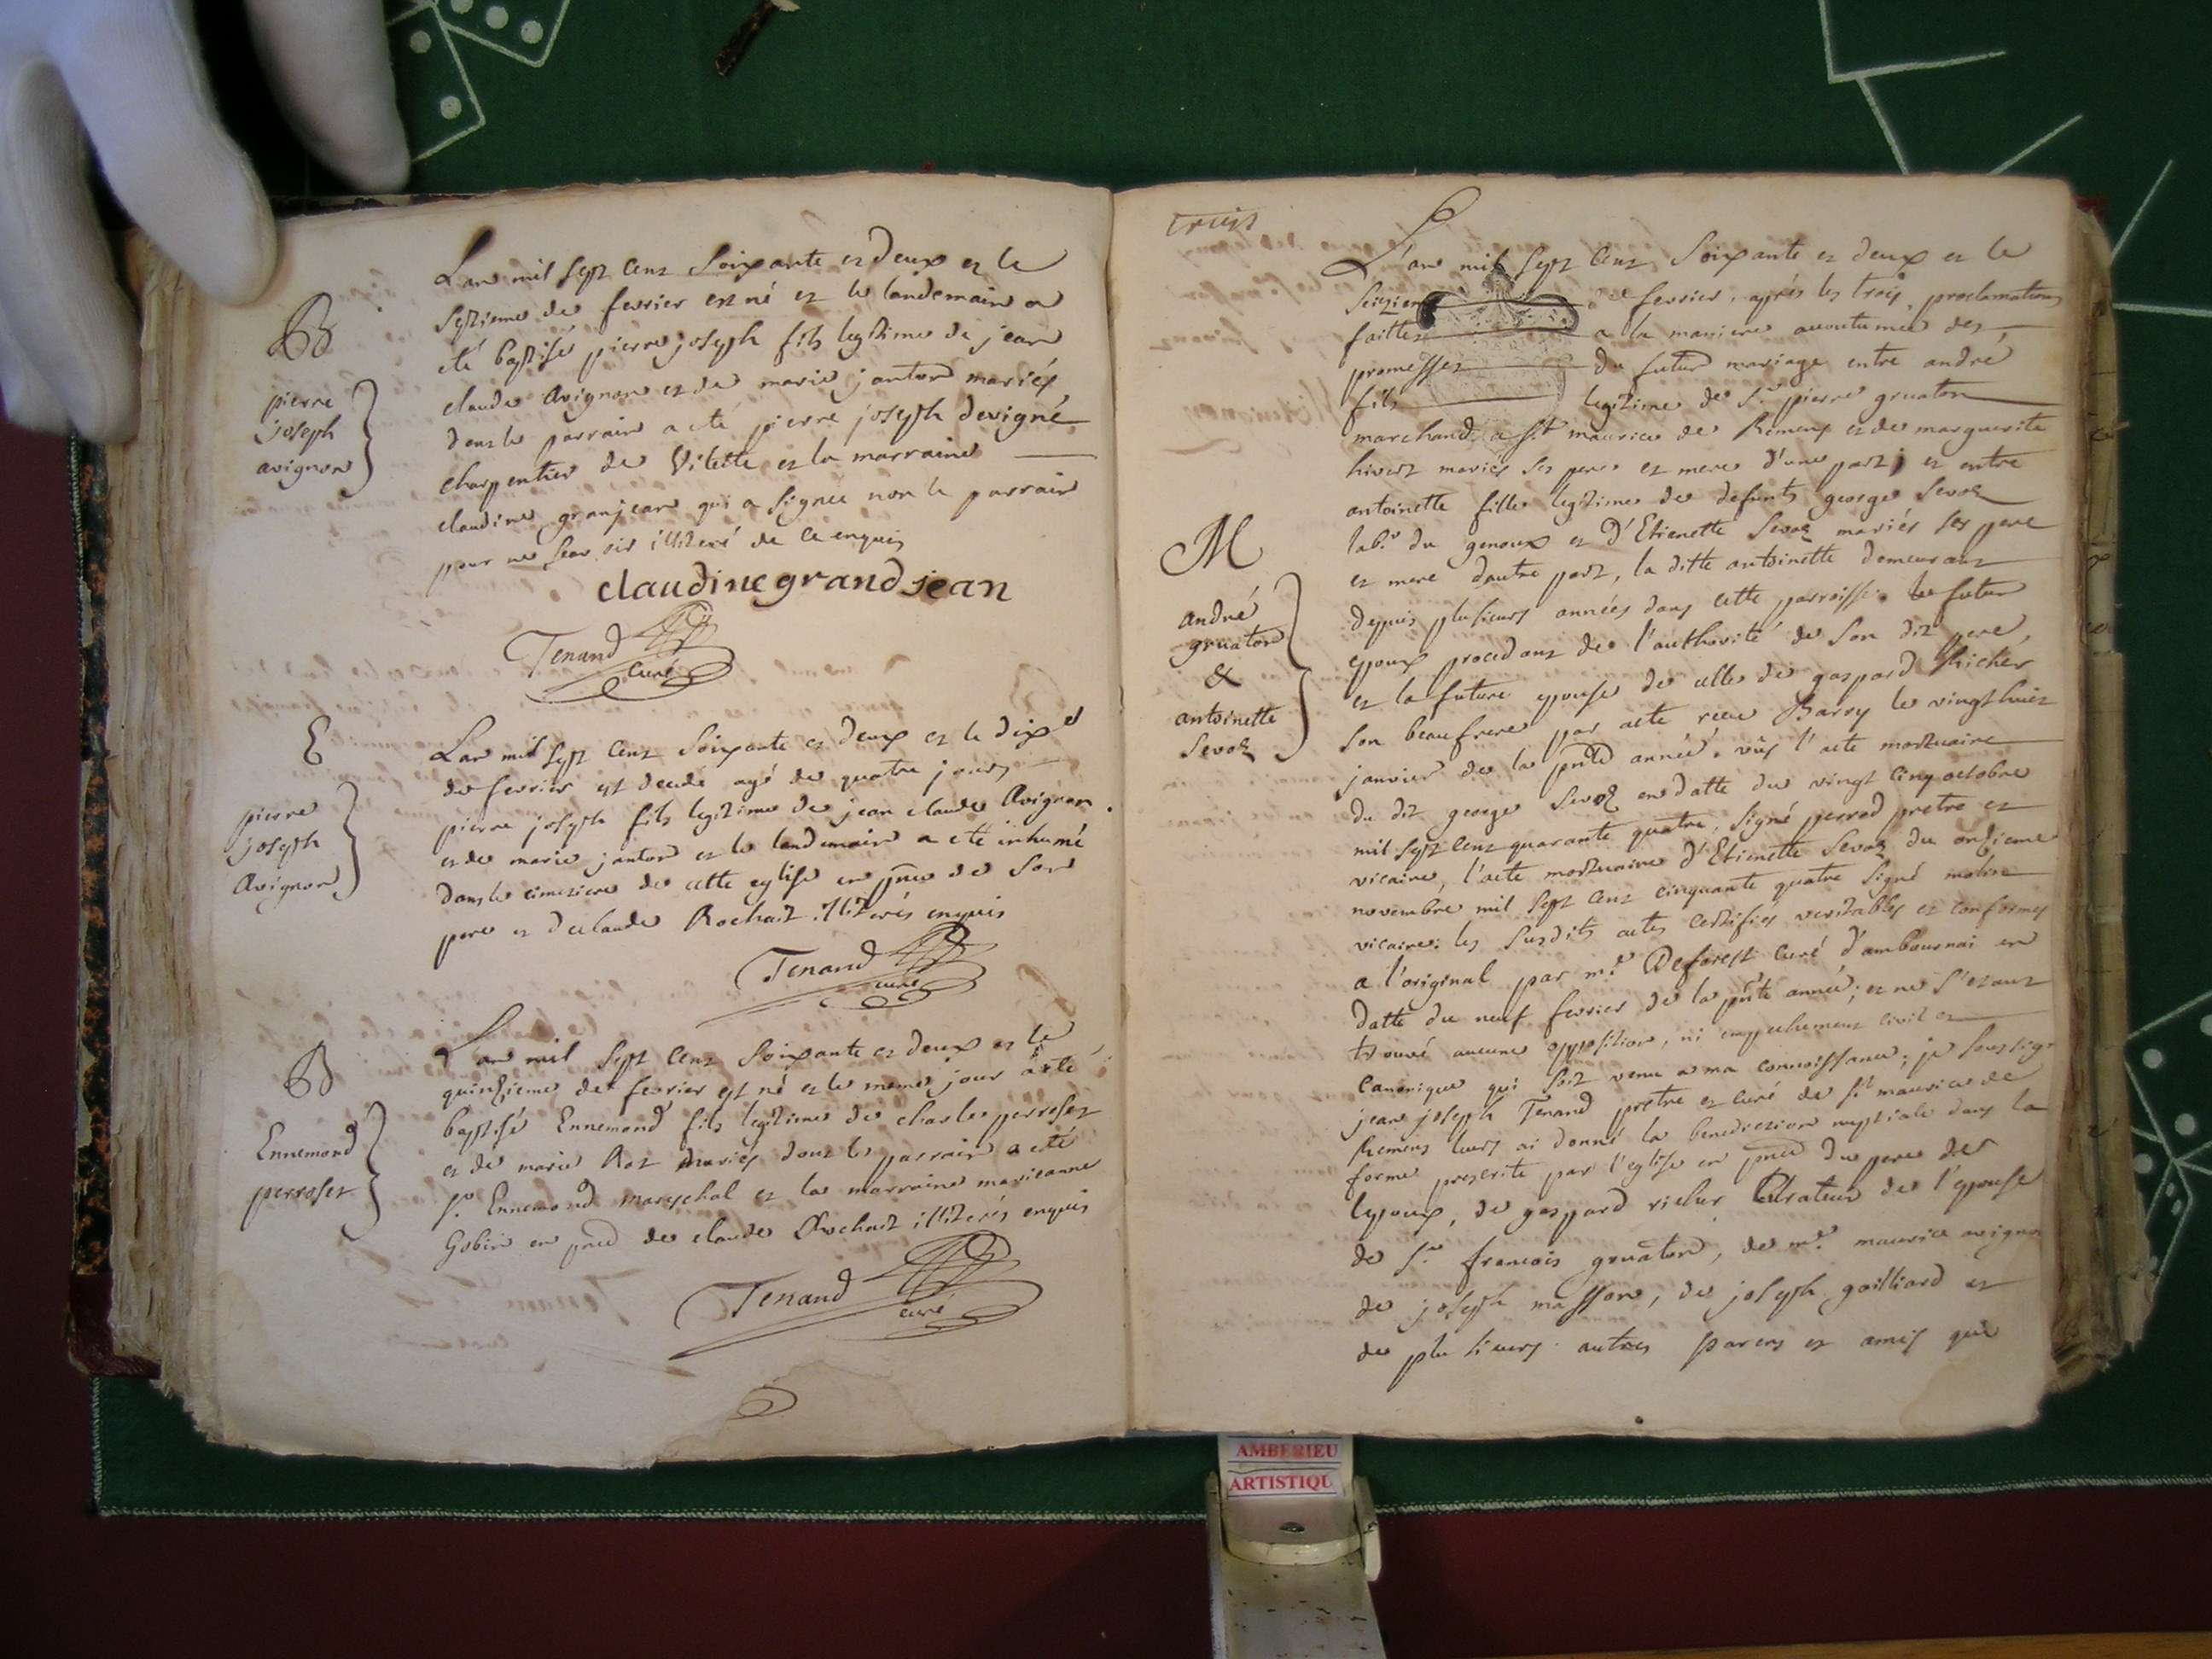 B
pierre
joseph
avignon
L'an mil sept cent soixante et deux et le
septieme de fevrier est né et le landemain a
eté baptisé pierre joseph fils legitime de jean
claude avignon et de marie janton mariés
dont le parrain a eté pierre joseph devigné
charpentier de Vilette et la marraine
claudine granjean qui a signée non le parrain
pour ne scavoir illiteré de ce enquis
claudine grand jean
Tenand
curé
E
pierre
joseph
Avignon
L'an mil sept cent soixante et deux et le dixe
de fevrier est decedé agé de quatre jours
pierre joseph fils legitime de jean claude Avignon
et de marie janton et le landemain a eté inhumé
dans le cimetiere de cette eglise en pnce de son
pere et de claude Rochait illiterés enquis
Tenand
curé
B
Ennemond
perroset
L'an mil sept cent soixante et deux et le
quinzieme de fevrier est né et le meme jour a eté
baptisé Ennemond fils legitime de charle perroset
et de marie Rot mariés dont le parrain a eté
sr Ennemond mareschal et la marraine marieanne
Gobin en pnce de claude Rochait illiterés enquis
Tenand
curé
trois
M
andré
gruaton
&
antoinette
Sevoz
L'an mil sept cent soixante et deux et le
seizieme de fevrier, aprés les trois proclamations
faittes a la maniere accoutumée des
promesses du futur mariage entre andré
fils legitime de sr pierre gruaton
marchand a st maurice de Remens et de marguerite
hivert mariés ses pere et mere d'une part; et entre
antoinette fille legitime de defunts george Sevoz
labr du genoux et d'Etienette Sevoz mariés ses pere
et mere dautre part, la ditte antoinette demeurant
depuis plusieurs années dans cette parroisse. le futur
epoux procedant de l'authorité de son dit pere,
et la future epouse de celle de gaspard Richer
son beaufrere par acte receu Barry le vingt huit
janvier de la pnte année. vûs l'acte mortuaire
du dit george Sevoz en datte du vingt cinq octobre
mil sept cent quarante quatre, signé perrod pretre et
vicaire, l'acte mortuaire d'Etienette Sevoz du onzieme
novembre mil sept cent cinquante quatre signé molin
vicaire: les susdits actes certifies veritables et conformes
a l'original par mre Deforest curé d'ambournai en
datte du neuf fevrier de la pnte année; et ne s'etant
trouvé aucune opposition, ni empechement civil et
canonique qui soit venu a ma connoissance; je soussigné
jean joseph Tenand pretre et curé de st maurice de
Remens leurs ai donné la benediction nuptiale dans la
forme prescrite par l'eglise en pnce du pere de
lepoux, de gaspard richer Curateur de l'epouse
de sr francois gruaton, de mre maurice avignon
de joseph masson, de joseph gailliard et
de plusieurs autres parens et amis que
AMBERIEU
ARTISTIQU